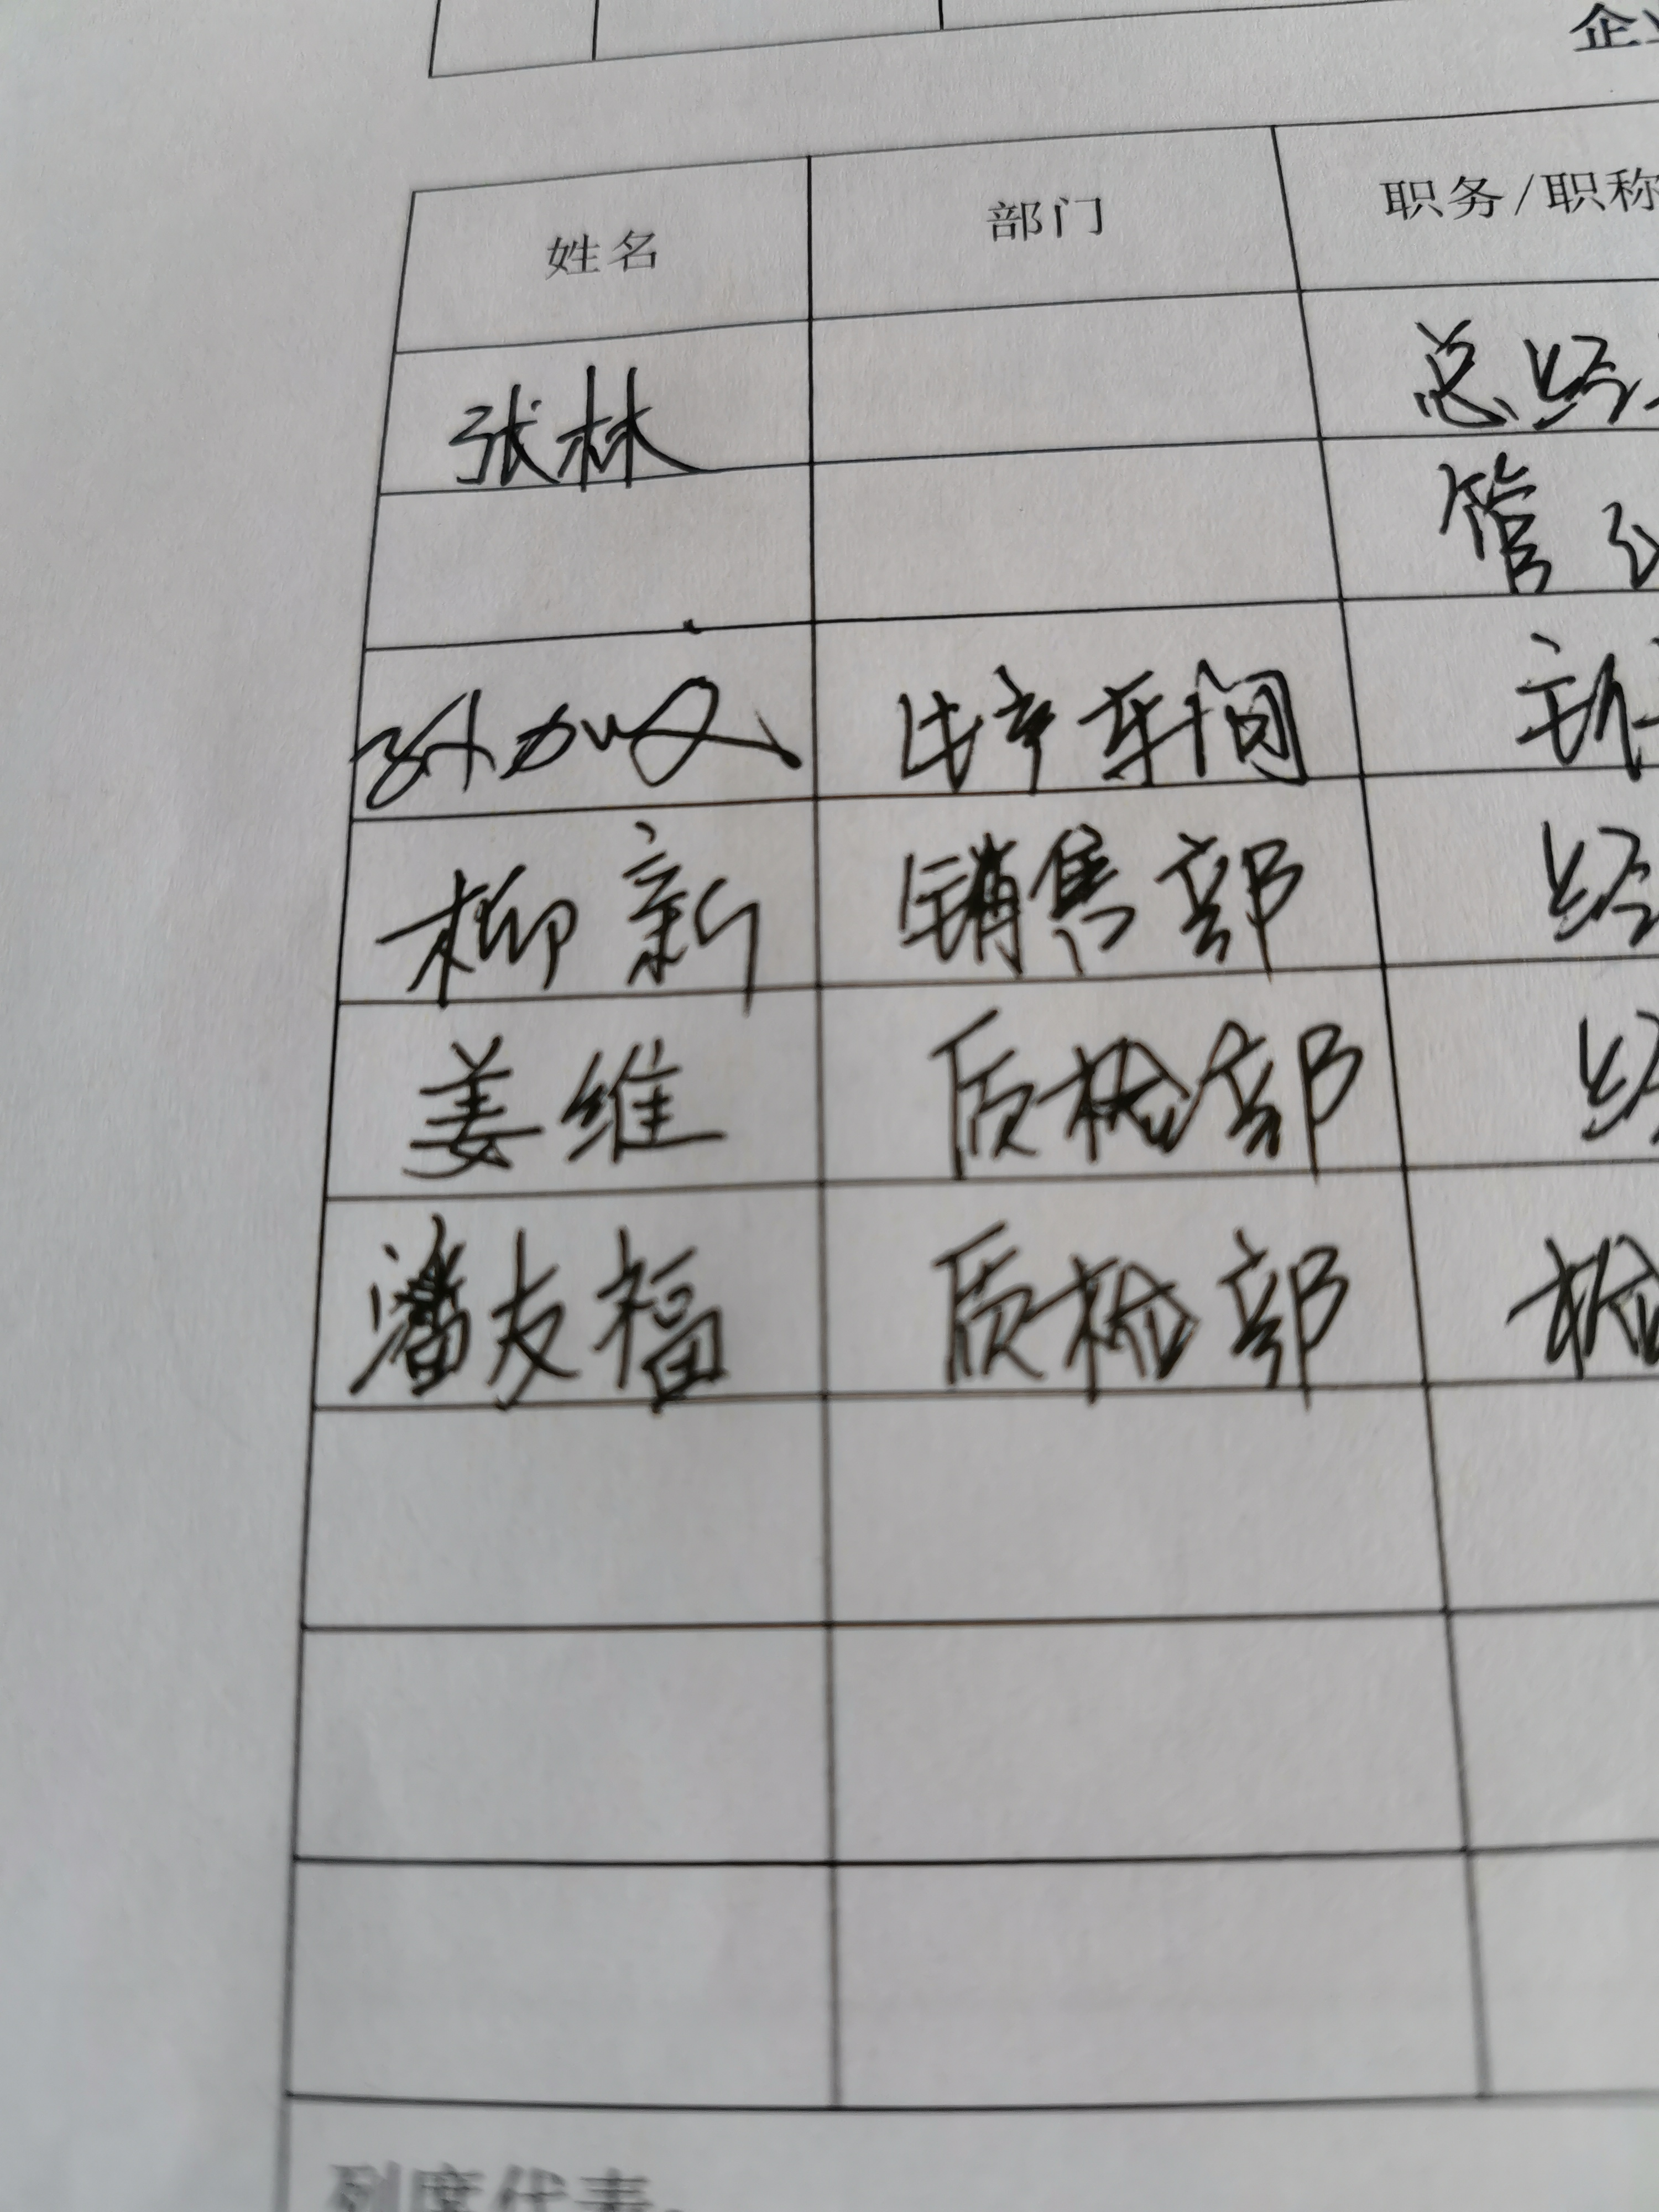 企业
姓名 部门 职务/职称
张林 总经
管
孙加 生产车间
柳新 销售部 经
姜维 质检部 经
潘友福 质检部 检
列席代表: